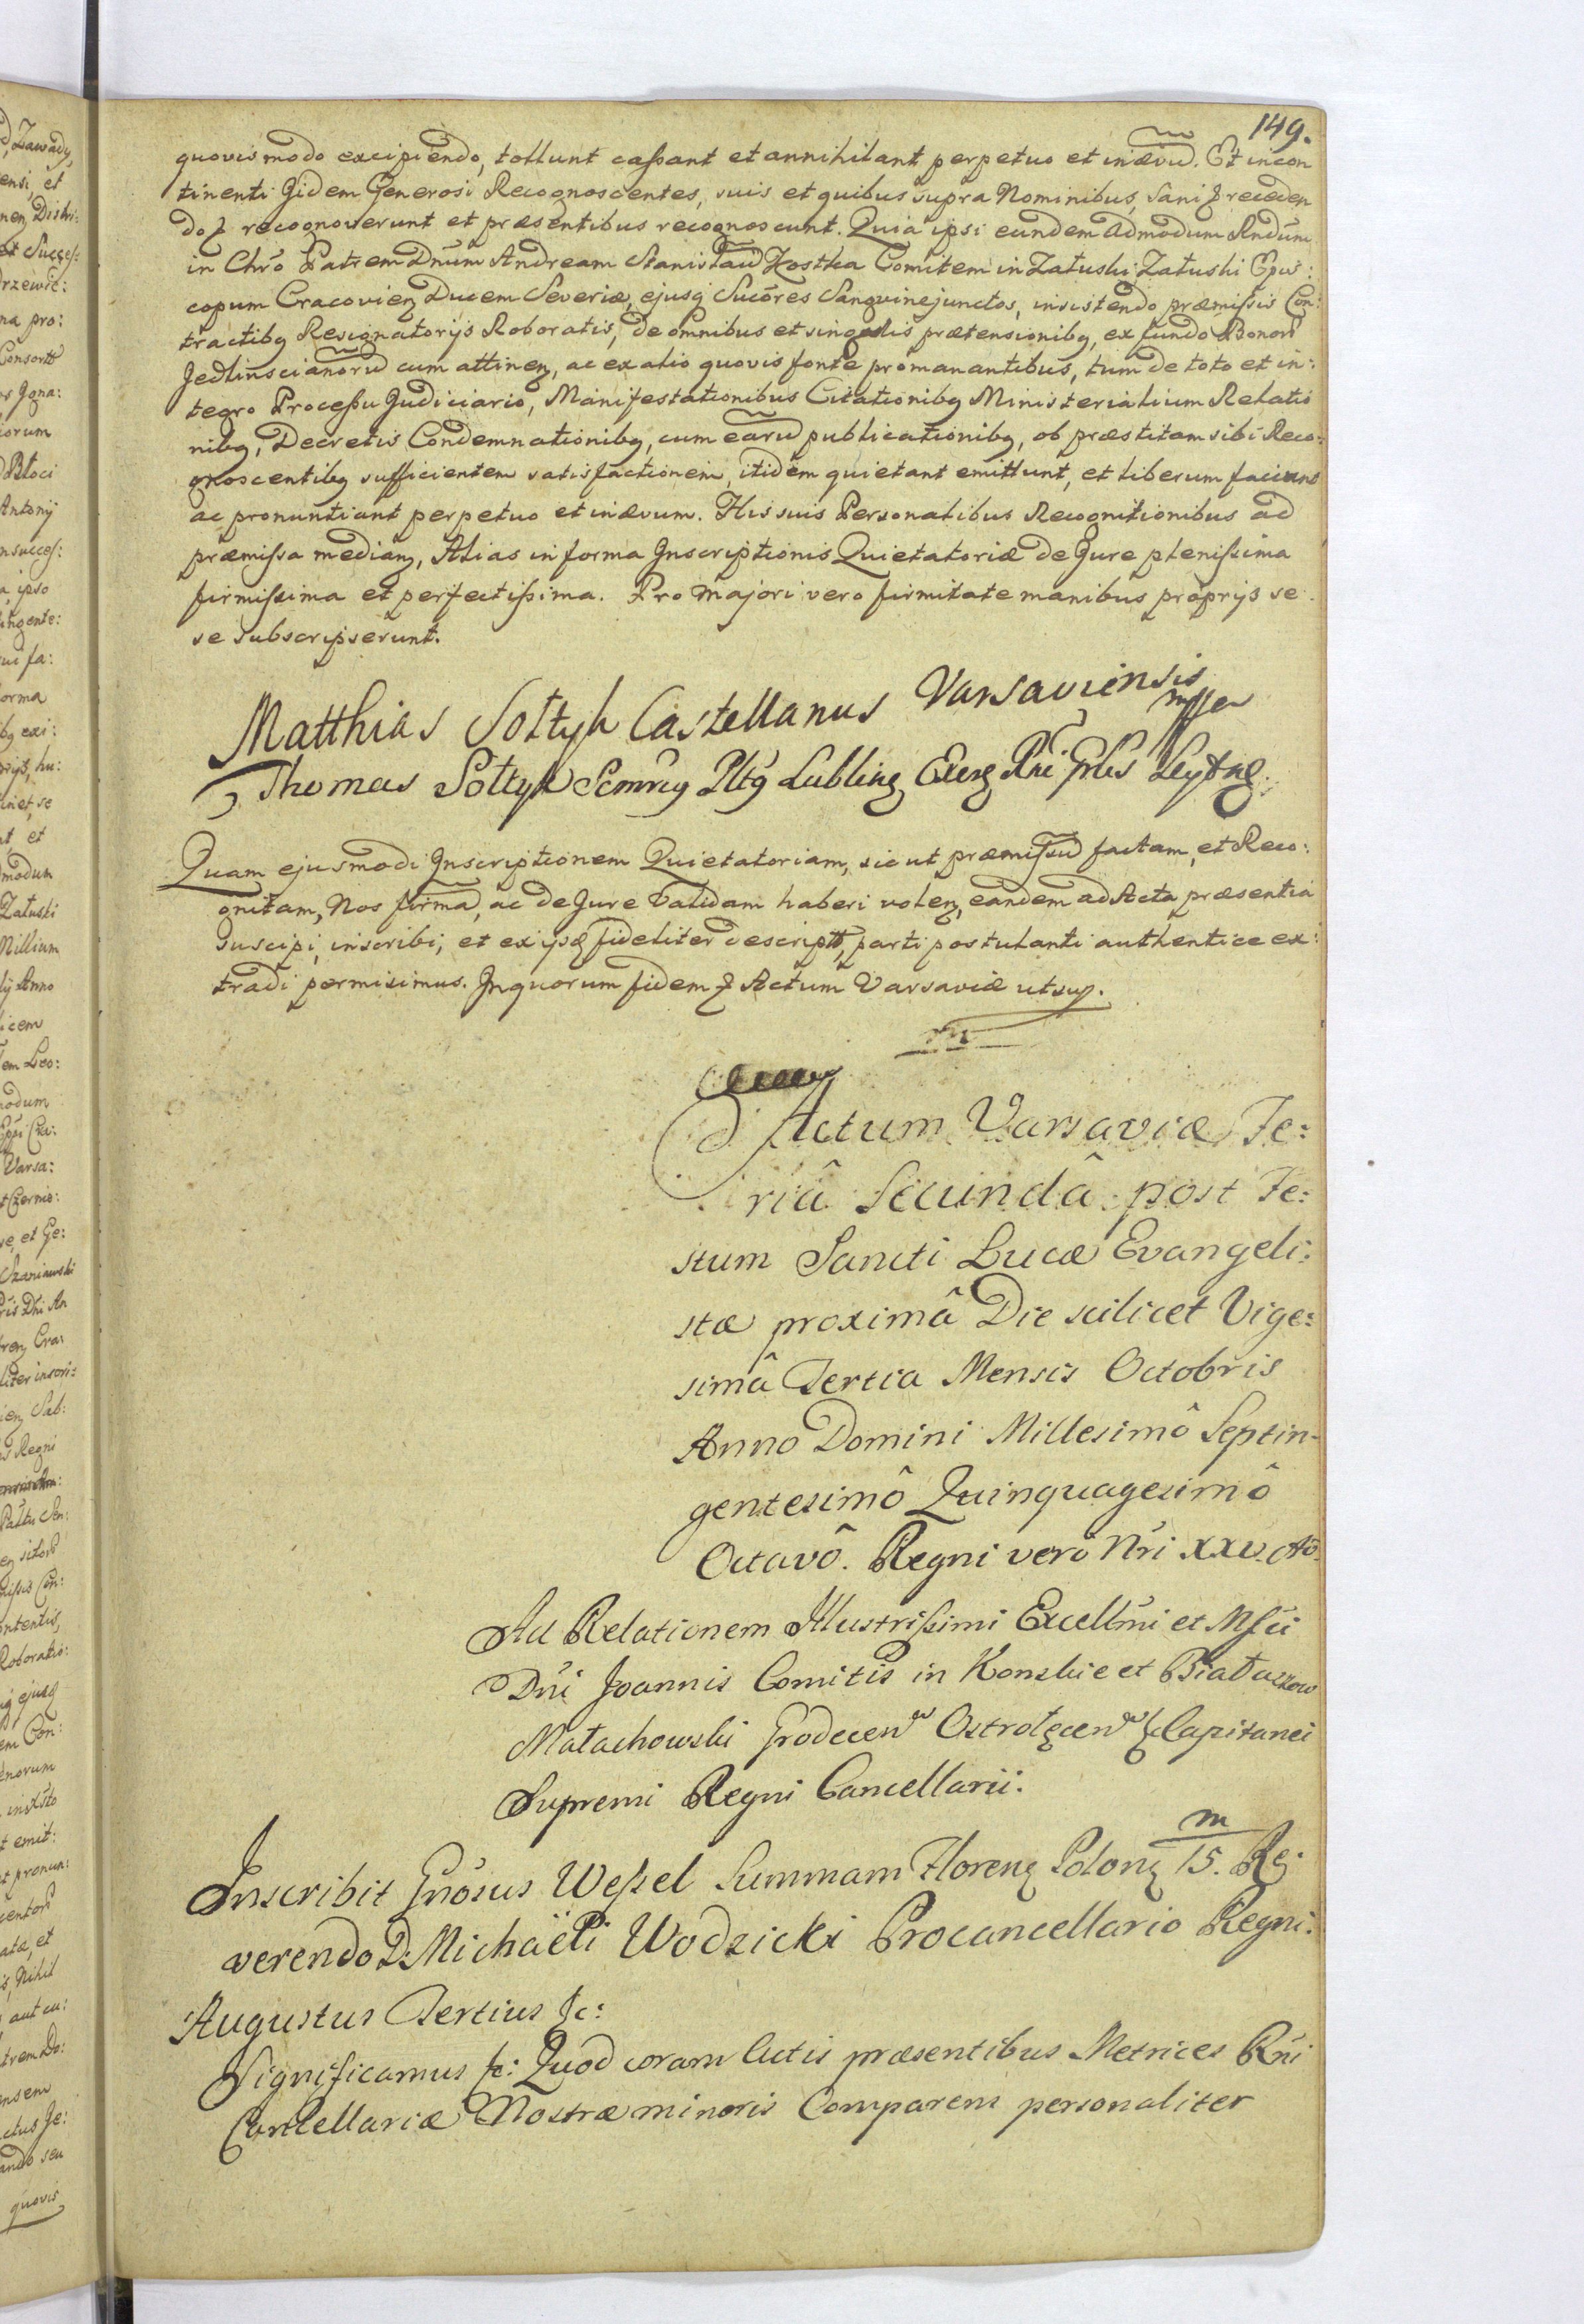 149.
quovis modo excipiendo, tollunt cassant et annihilant perpetuo et in ævū. Et incon
tinenti Iidem Generosi Recognoscentes, suis et quibus supra Nominibus, sani & receden
do & recognoverunt et præsentibus recognoscunt. Quia ipsi eundem Admodum Rndūm
in Chrō Patrem Dnūm Andream Stanislaū Kostka Comitem in Załuski Załuski Epis:
copum Cracovien Ducem Severiæ, ejusq Sucōres Sangvine junctos, insistendo præmissis Con:
tractibq Resignatorijs Roboratis, de omnibus et singulis prætensionibq, ex fundo Bonorū
Jedlinscianorū cum attinen, ac ex alio quovis fonte promanantibus, tum de toto et in:
tegro Processu Judiciario, Manifestationibus Citationibq Ministerialium Relatio
nibq, Decretis Condemnationibq, cum earū publicationibq, ob præstitam sibi Reco:
gnoscentibq sufficientem satisfactionem, itidem quietant emittunt, et liberum faciunt
ac pronuntiant perpetuo et in ævum. His suis Personalibus Recognitionibus ad
præmissa median, Alias in forma Inscriptionis Quietatoriæ de Jure plenissima
firmissima et perfectissima. Pro majori vero firmitate manibus proprijs se
se subscripserunt.
Matthias Sołtyk Castellanus Varsaviensis
mpp
Thomas Sołtyk
Quam ejusmodi Inscriptionem Quietatoriam, sic ut præmissū factam, et Reco:
gnitam, Nos firmā, ac de Jure validam haberi volen, eandem ad Acta præsentia
suscipi, inscribi, et ex ijsq fideliter descriptā, parti postulanti authentice ex:
tradi permisimus. In quorum fidem & Actum Varsaviæ ut sup.
Actum Varsaviæ Fe:
riâ Secundâ post Fe:
stum Sancti Lucæ Evangeli:
stæ proximâ Die scilicet Vige:
simâ Tertia Mensis Octobris
Anno Domini Millesimô Septin-
gentesimô Quinquagesimô
Octavô. Regni verō Nri XXV. Aō
Ad Relationem Illustrissimi Excellmi et Mfci
Dni Joannis Comitis in Konskie et Białaczow
Małachowski Grodecen Ostrołęcen & Capitanei
Supremi Regni Cancellarii.
Inscribit Gnōsus Wessel Summam Floren Polon m/15. Re:
verendo D. Michaëli Wodzicki Procancellario Regni.
Augustus Tertius &c:
Significamus &c: Quod coram Actis præsentibus Metrices Rni
Cancellariæ Nostræ minoris Comparens personaliter